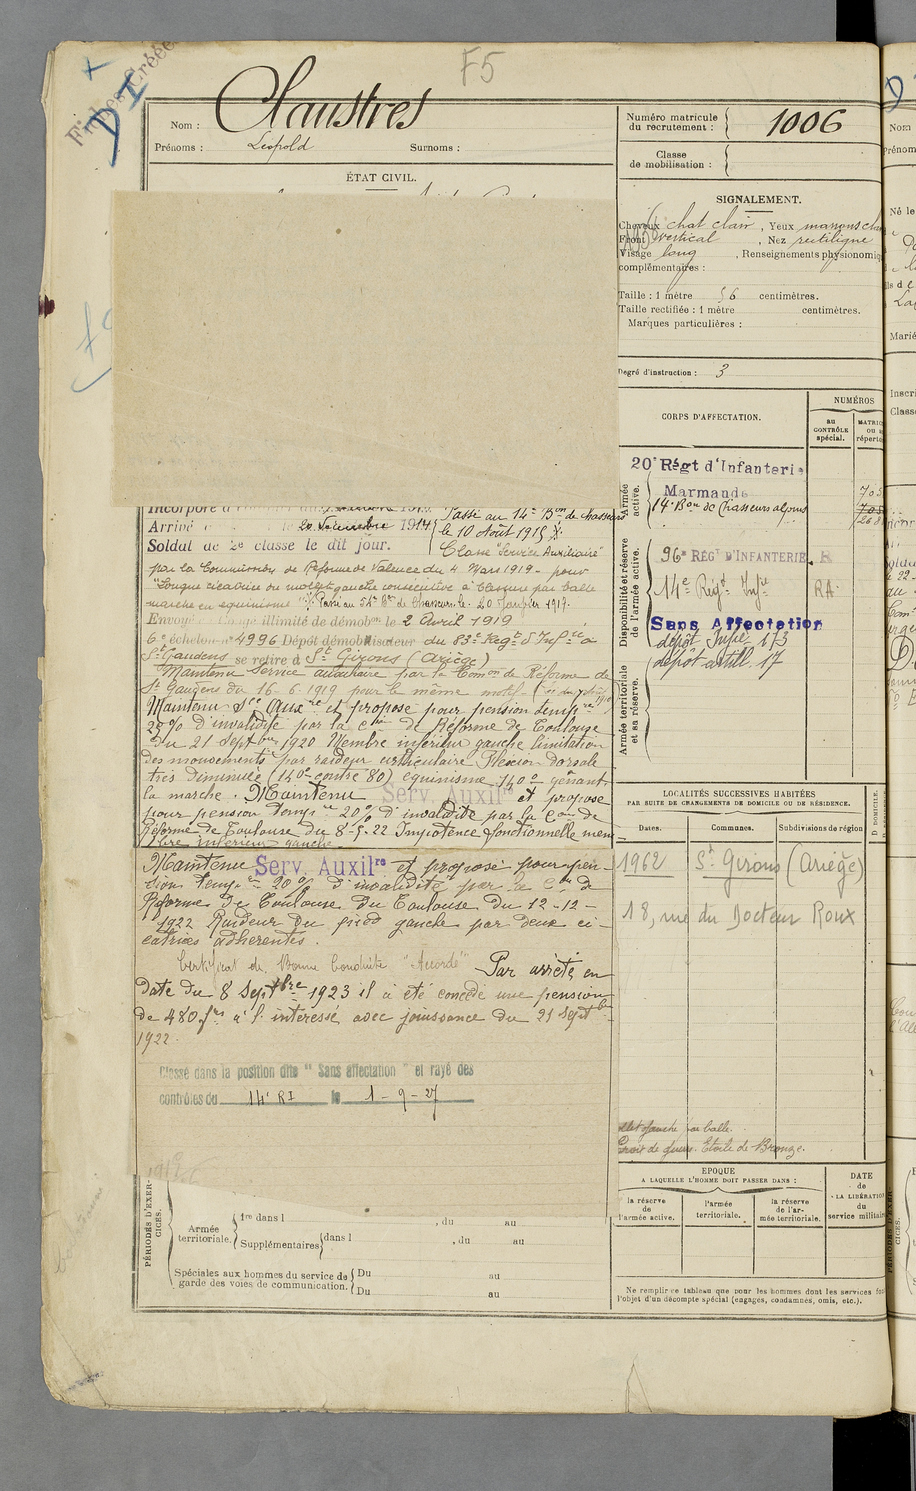 F5
Nom : Claustres
Prénoms : Léopold Surnoms :
Numéro matricule
du recrutement : 1006
Classe
de mobilisation :
ÉTAT CIVIL.
SIGNALEMENT.
Cheveux chat clair , Yeux marrons
Front vertical , Nez rectiligne
Visage long , Renseignements physionomi
complémentaires :
Taille : 1 mètre 56 centimètres.
Taille rectifiée : 1 mètre centimètres.
Marques particulières :
Degré d'instruction : 3
CORPS D'AFFECTATION.
NUMÉROS
au
CONTRÔLE
spécial.
Armée
active.
20e Régt d'Infanterie
Marmande
14e Bon de Chasseurs alpins
Disponibilité et réserve
de l'armée active.
96e RÉGt D'INFANTERIE. R
14e Régt Infie RA
Sans Affectation
dépôt Infie 173
dépôt artill. 17
Armée territoriale
et sa réserve.
Arrivé le 1914
Passé au 14e Bon de chasseurs
le 10 Août 1915
Soldat de 2e classe le dit jour.
Classé "Service Auxiliaire"
par la Commission de Réforme de Valence du 4 Mars 1919 - pour
"Longue cicatrice du mollet gauche consécutive à blessure par balle
marche en équinisme" Passé au Bon de Chasseurs le 20 1919.
Envoyé en congé illimité de démobon le 2 Avril 1919
6e échelon no 4996 Dépôt démobilisateur du 83e Regt d'Infie à
St Gaudens se retire à St Girons (Ariège)
Maintenu Service auxiliaire par la Comon de Réforme de
St Gaudens du 16-6-1919 pour le même motif
Maintenu Sce Auxre et proposé pour pension tempre
20% d'invalidité par la Con de Réforme de Toulouse
du 21 Septbre 1920 Membre inférieur gauche limitation
des mouvements par raideur articulaire Flexion dorsale
très diminuée (140° contre 80) équinisme 140° gênant
la marche. Maintenu Serv. Auxilre et proposé
pour pension tempre 20% d'invalidité par la Con de
Réforme de Toulouse du 8-5-22 Impotence fonctionnelle mem
bre inférieur gauche
Maintenu Serv. Auxilre et proposé pour pen-
sion tempre 20% d'invalidité par la Con de
Réforme de Toulouse du Toulouse du 12-12-
1922 Raideur du pied gauche par deux ci-
catrices adhérentes.
Certificat de Bonne Conduite "Accordé" Par arrêté en
date du 8 Septbre 1923 il a été concédé une pension
de 480 frs à l'intéressé avec jouissance du 21 Septbre
1922
Classé dans la position dite " Sans affectation " et rayé des
contrôles du 14e RI le 1-9-27
LOCALITÉS SUCCESSIVES HABITÉES
PAR SUITE DE CHANGEMENTS DE DOMICILE OU DE RÉSIDENCE.
Dates. Communes. Subdivisions de région
1962 St Girons (Ariège)
18, rue du Docteur Roux
gauche par balle.
Croix de guerre Etoile de Bronze.
EPOQUE
A LAQUELLE L'HOMME DOIT PASSER DANS :
la réserve
de
l'armée active.
l'armée
territoriale.
la réserve
de l'ar-
mée territoriale.
DATE
de
LA LIBÉRATION
du
service militaire
PÉRIODES D'EXER-
CICES.
Armée
territoriale.
1re dans l , du au
Supplémentaires dans l , du au
Spéciales aux hommes du service de
garde des voies de communication.
Du au
Du au
Ne remplir ce tableau que pour les hommes dont les services
l'objet d'un décompte spécial (engagés, condamnés, omis, etc.).